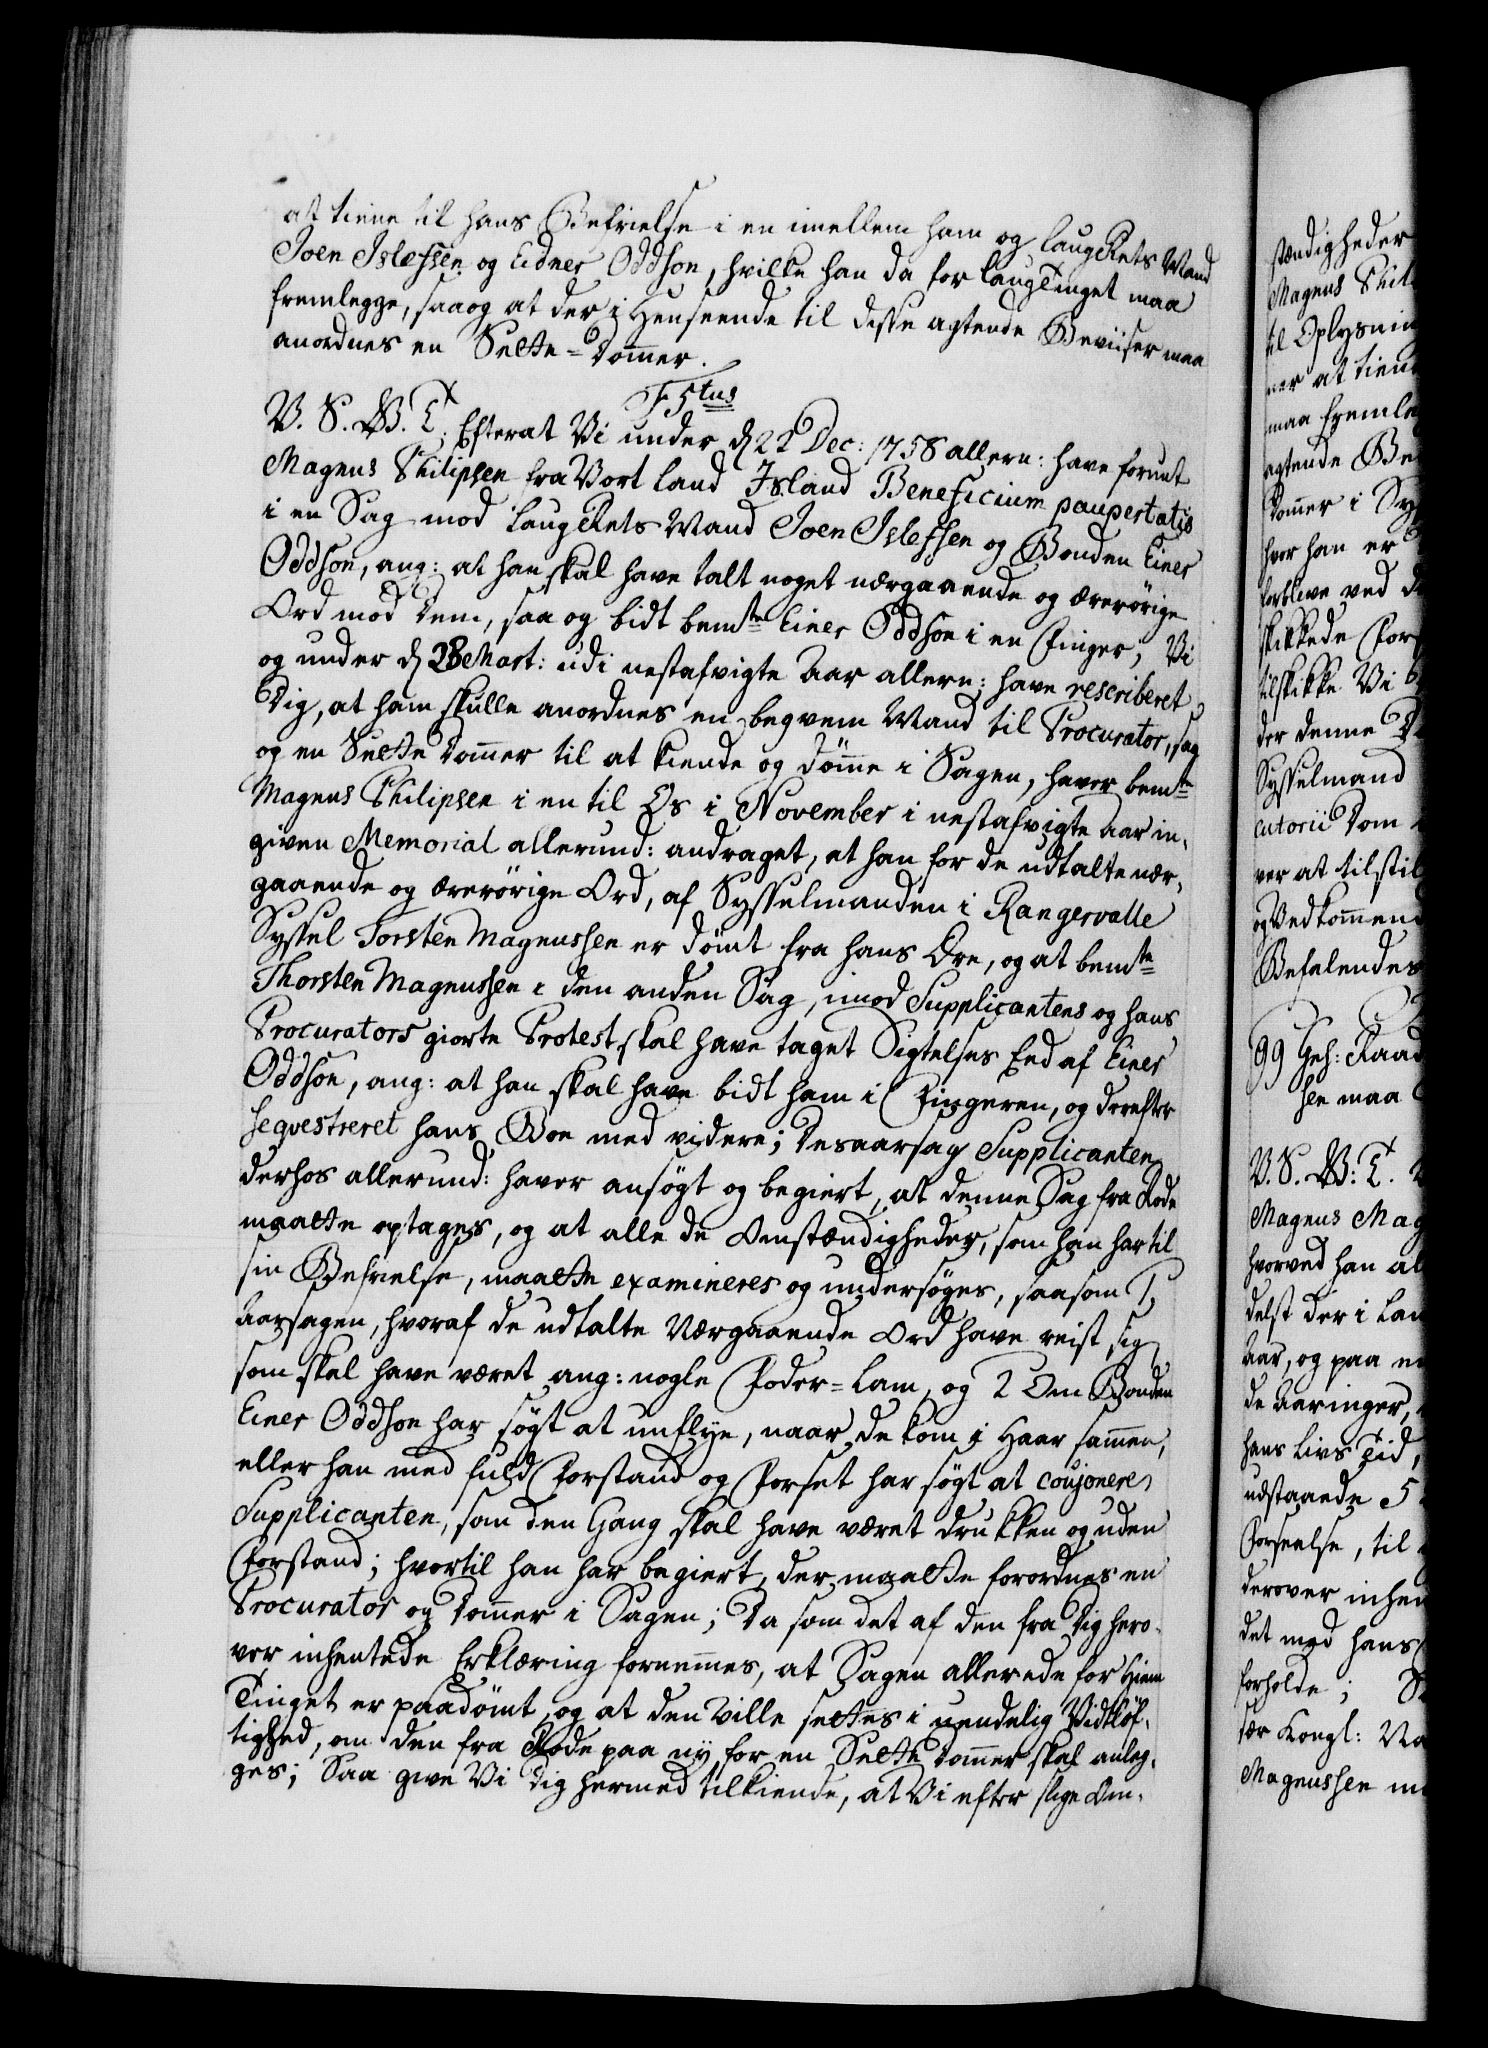 at tiene til hans Befrielse i en imellem ham og LaugRets Mand
Joen Islefsen og Eidner Oddson, hvilke han da for laugTinget maa
fremlegge, saa og at der i Henseende til disse agtende Beviiser maa
anordnes en Sætte-Dommer.
F 5tus
V. S. G. T. Efterat Vi under d 22 Dec: 1758 allern: have forunt
Magnus Philipsen fra Vort Land Island Beneficium paupertatis
i en Sag mod LaugRets Mand Joen Islefsen og Bonden Einer
Oddson, ang: at han skal have talt noget nærgaaende og ærerørige
Ord mod Dem, saa og bidt bemte Einer Oddson i en Finger; Vi
og under d 28 Mart: udi nestafvigte Aar allern: have rescriberet
Dig, at ham skulle anordnes en beqvem Mand til Procurator, saa
og en Sætte Dommer til at kiende og dømme i Sagen, haver bemte
Magnus Philipsen i en til Os i November i nestafvigte Aar in-
given Memorial allerund: andraget, at han for de udtalte nær-
gaaende og ærerørige Ord, af Sysselmanden i Rangervalle
Syssel Torsten Magnussen er dømt fra hans Ære, og at bemte
Thorsten Magnussen i den anden Sag, imod Supplicantens og hans
Procurators giorte Protest skal have taget Sigtelses Eed af Einer
Oddson, ang: at han skal have bidt ham i Fingeren, og derefter
seqvestreret hans Boe med videre; Desaarsag Supplicanten
derhos allerund: haver ansøgt og begiert, at denne Sag fra Rode
maatte optages, og at alle de Omstændigheder, som han har til
sin Befrielse, maatte examineres og undersøges, saasom 1.
Aarsagen, hvoraf de udtalte Nærgaaende Ord have reist sig,
som skal have været ang: nogle Foder-Lam, og 2 Om Bonden
Einer Oddson har søgt at undflye, naar de kom i Haar sammen,
eller han med fuld Forstand og Forset har søgt at coujonere
Supplicanten, som den Gang skal have været drukken og uden
Forstand; hvortil han har begiert, der maatte forordnes en
Procurator og Dommer i Sagen; Da som det af den fra Dig hero-
ver inhentede Erklæring fornemmes, at Sagen allerede for Hiem
Tinget er paadømt, og at den ville settes i uendelig Vidtløf-
tighed, om den fra Rode paa ny for en Sætte Dommer skal anleg-
ges; Saa give Vi Dig hermed tilkiende, at Vi efter slige Om-
stændigheder
Magnus Phil
til Oplysnin
ner at tien
maa fremle
agtende Be
Dommer i Sy
hvor han er
forblive ved
skikkede For
tilskikke Vi
der denne
Sysselmand
cutorii Dom
ver at tilstil
og Vedkommen
Befalendes
99 Geh: Raad
sen maa
V. S. G. T.
Magnus Mag
hvorved han al
delst der i Lan
Aar, og paa
de Aaringer,
hans Livs Tid,
udstaaede 5
Forseelse, til
derover inhen
det med hans
forholde;
sær Kongl: Na
Magnussen